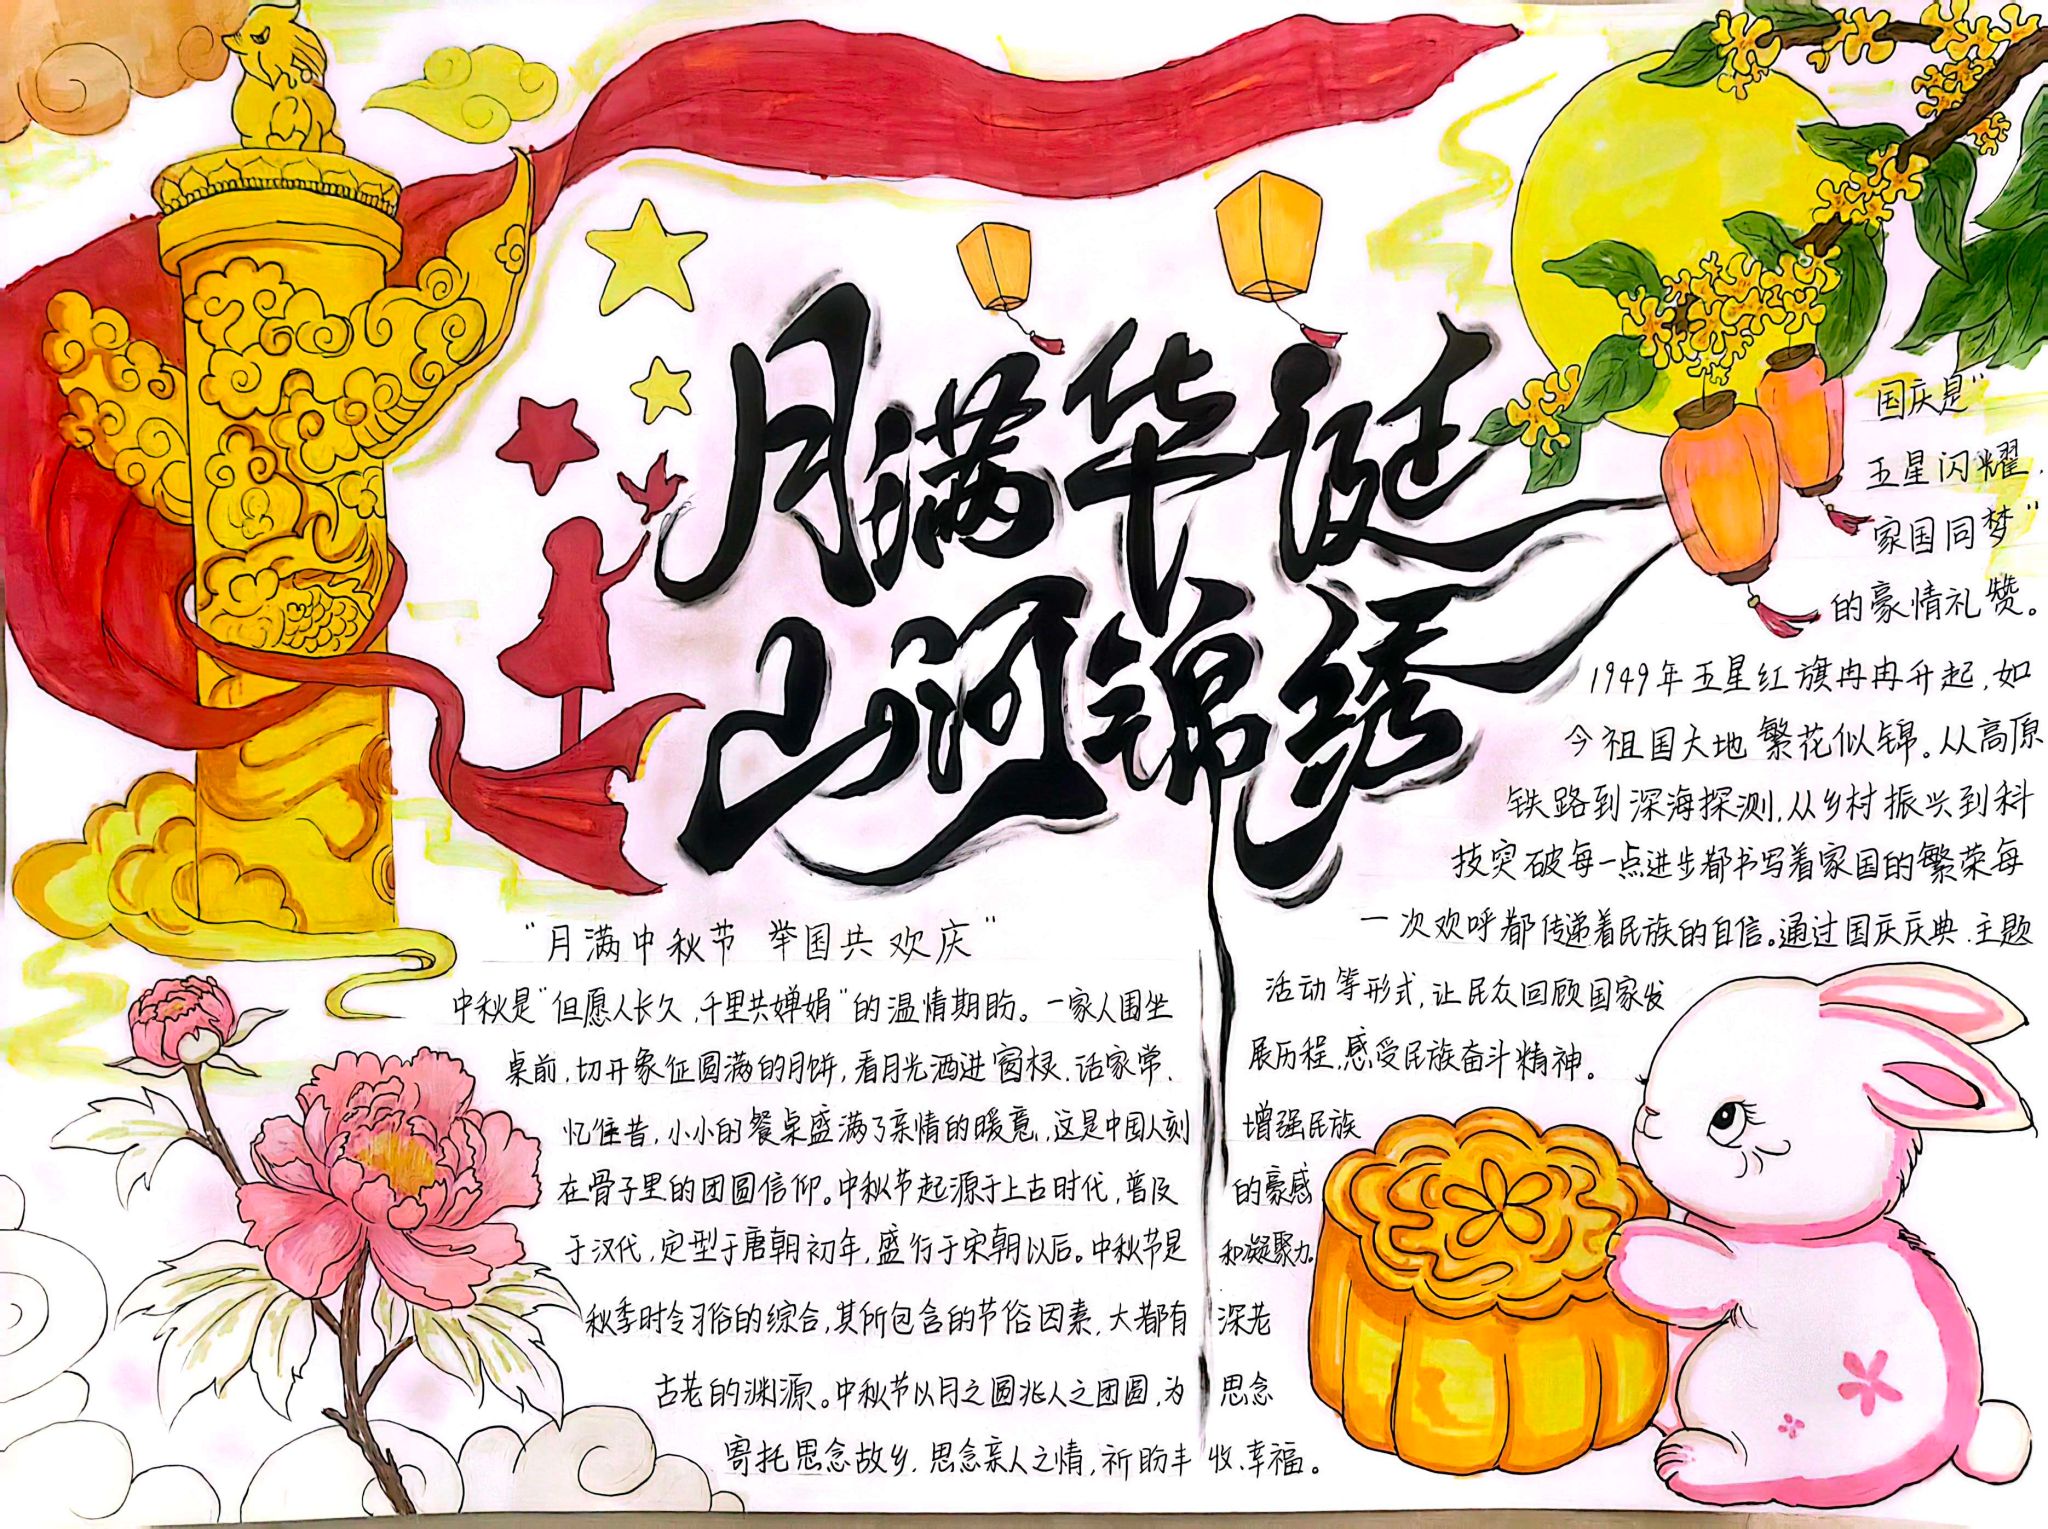 月满华诞
山河锦绣
"月满中秋节 举国共欢庆"
中秋是"但愿人长久,千里共婵娟"的温情期盼。一家人围坐
桌前,切开象征圆满的月饼,看月光洒进窗棂、话家常、
忆往昔,小小的餐桌盛满了亲情的暖意,这是中国人刻
在骨子里的团圆信仰。中秋节起源于上古时代,普及
于汉代,定型于唐朝初年,盛行于宋朝以后。中秋节是
秋季时令习俗的综合,其所包含的节俗因素,大都有 深老
古老的渊源。中秋节以月之圆兆人之团圆,为 思念
寄托思念故乡,思念亲人之情,祈盼丰收、幸福。
国庆是"
五星闪耀,
家国同梦"
的豪情礼赞。
1949年五星红旗冉冉升起,如
今祖国大地繁花似锦。从高原
铁路到深海探测,从乡村振兴到科
技突破每一点进步都书写着家国的繁荣每
一次欢呼都传递着民族的自信。通过国庆庆典、主题
活动等形式,让民众回顾国家发
展历程,感受民族奋斗精神。
增强民族
的豪感
和凝聚力。